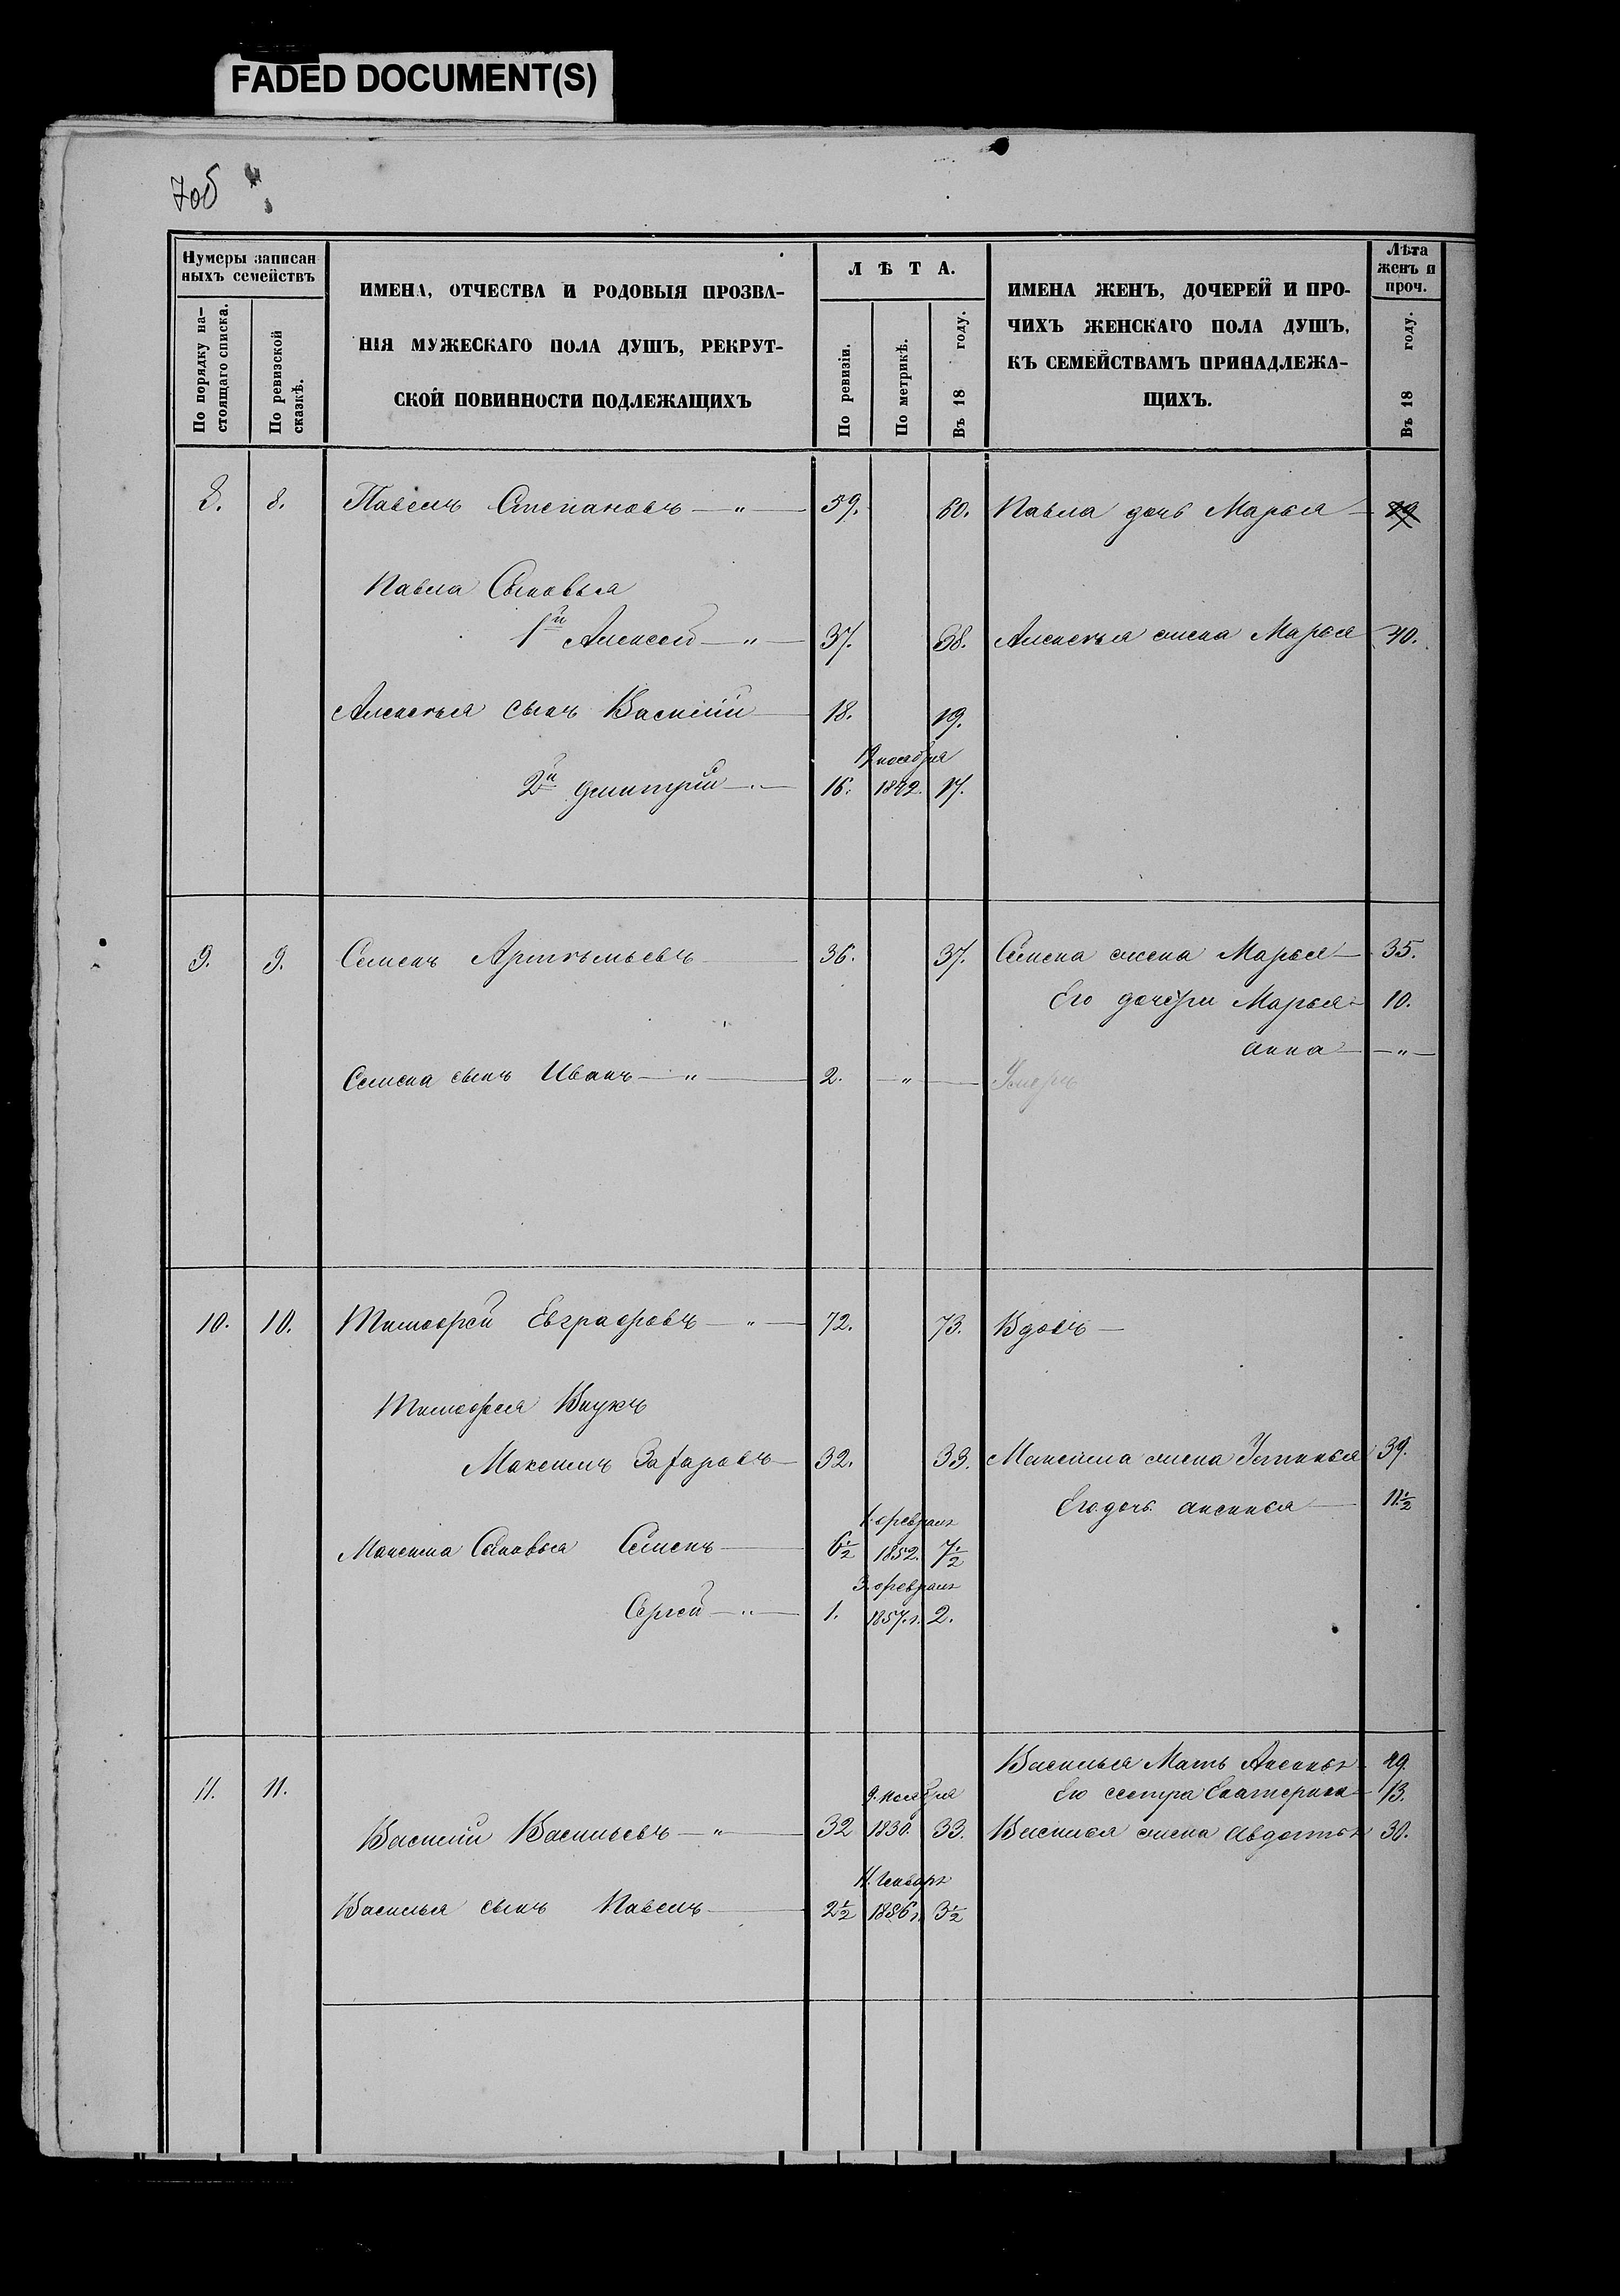 FADED DOCUMENT(S)
7об
Нумеры записан
ныхъ семействъ
По порядку на-
стоящаго списка.
По ревизской
сказкѣ.
ИМЕНА, ОТЧЕСТВА И РОДОВЫЯ ПРОЗВА-
НІЯ МУЖЕСКАГО ПОЛА ДУШЪ, РЕКРУТ-
СКОЙ ПОВИННОСТИ ПОДЛЕЖАЩИХЪ
ЛѢТА.
По ревизіи.
По метрикѣ.
Въ 18 году.
ИМЕНА ЖЕНЪ, ДОЧЕРЕЙ И ПРО-
ЧИХЪ ЖЕНСКАГО ПОЛА ДУШЪ,
КЪ СЕМЕЙСТВАМЪ ПРИНАДЛЕЖА-
ЩИХЪ.
Лѣта
женъ и
проч.
Въ 18 году.
8. 8. Павелъ Степановъ — " — 59. 60. Павла дочь Марья —
Павла Сыновья
1й Алексей — " — 37. 38. Алексѣя жена Марья 40.
Алексѣя сынъ Василій — 18. 19.
19 ноября
2й Дмитрій — " — 16. 1842. 17.
9. 9. Семенъ Артѣмьевъ — 36. 37. Семена жена Марья — 35.
Его дочери Марья — 10.
Анна — — " —
Семена сынъ Иванъ — " — 2. — " — Умеръ
10. 10. Тимофей Евграфовъ — " — 72. 73. Вдовъ —
Тимофея Внукъ
Максимъ Захаровъ — 32. 33. Максима жена Устинья 39.
Его дочь Аксинья — 11 1/2
1. февраля
Максима Сыновья Семенъ — 6 1/2 1852. 7 1/2
3. февраля
Сергей — " — 1. 1857.г. 2.
Василья Мать Аксинья 49.
11. 11. Его сестра Екатерина — 13.
9. ноября
Василій Васильевъ — " — 32 1830. 33. Василья жена Авдотья 30.
11. Генваря
Василья сынъ Павелъ — 2 1/2 1856 г. 3 1/2